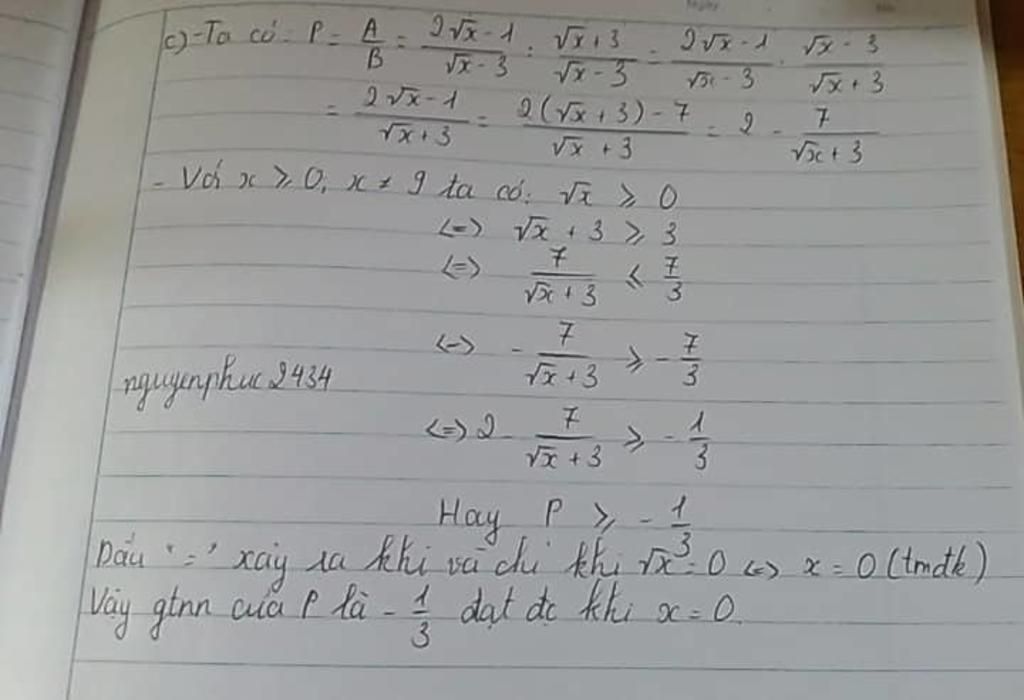 c) - Ta có: P = A/B = (2√x - 1)/(√x - 3) : (√x + 3)/(√x - 3) = (2√x - 1)/(√x - 3) . (√x - 3)/(√x + 3)
= (2√x - 1)/(√x + 3) = (2(√x + 3) - 7)/(√x + 3) = 2 - 7/(√x + 3)
- Với x ≥ 0; x ≠ 9 ta có: √x ≥ 0
<=> √x + 3 ≥ 3
<=> 7/(√x + 3) ≤ 7/3
<=> - 7/(√x + 3) ≥ - 7/3
nguyenphuc2434
<=> 2 - 7/(√x + 3) ≥ - 1/3
Hay P ≥ - 1/3
Dấu "=" xảy ra khi và chỉ khi √x = 0 <=> x = 0 (tmđk)
Vậy gtnn của P là - 1/3 đạt đc khi x = 0.